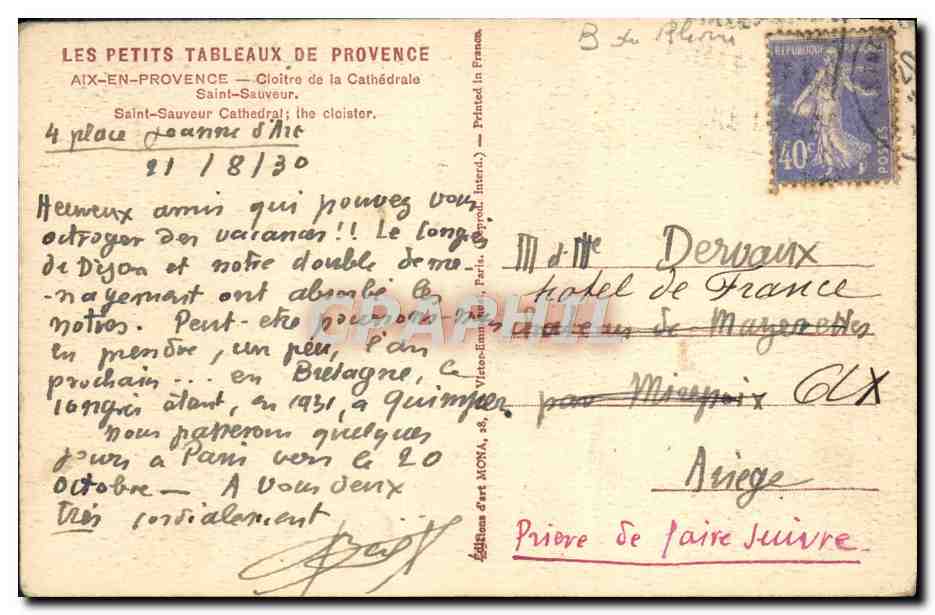 LES PETITS TABLEAUX DE PROVENCE
AIX-EN-PROVENCE — Cloître de la Cathédrale
Saint-Sauveur.
Saint-Sauveur Cathedral; the cloister.
4 place Jeanne d'Arc
21/8/30
Heureux amis qui pouvez vous
octroyer des vacances!! Le Congrès
de Dijon et notre double démé-
-nagement ont absorbé les
nôtres. Peut-être pourrons-nous
en prendre, un peu, l'an
prochain... en Bretagne, le
congrès étant, en 1931, à Quimper.
Nous passerons quelques
jours à Paris vers le 20
octobre — A vous deux
très cordialement
Editions d'art MONA, 28, Victor-Emmanuel, Paris. (Reprod. Interd.) — Printed in France.
B du Rhône
REPUBLIQUE FRANÇAISE
40c
POSTES
M et Me Dervaux
hotel de France
Chateau de Mazerettes
par Mirepoix AX
Ariège
Prière de faire suivre
CPAPHIL